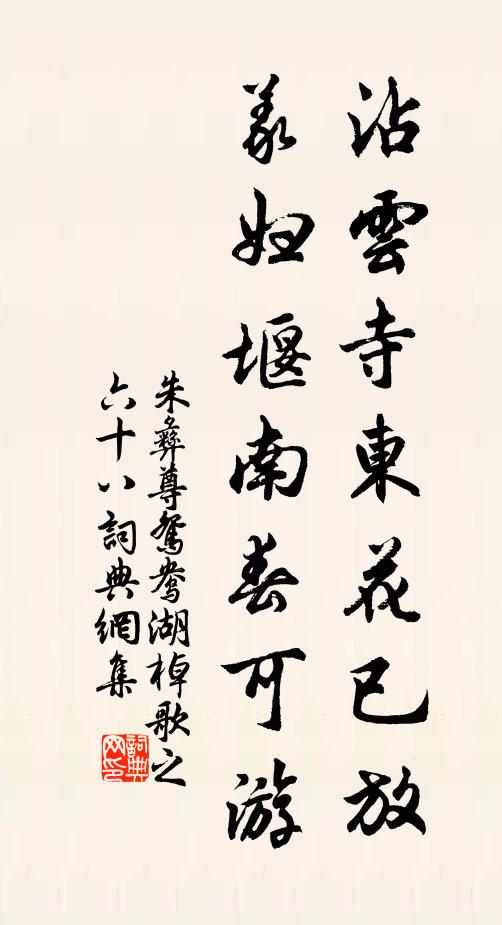 沾雲寺東花已放
義妇堰南春可游
朱彝尊鴛鴦湖棹歌之
六十八詞典網集
詞典网印